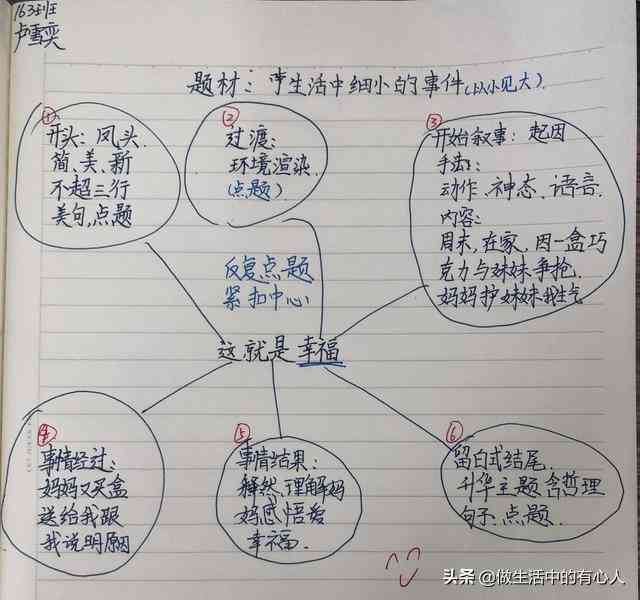 163班
卢雪奕
题材:生活中细小的事件(以小见大).
①
开头:凤头.
简、美、新
不超三行
美句,点题
②
过渡:
环境渲染.
(点题)
③
开始叙事:起因
手法:
动作、神态、语言.
内容:
周末,在家,因一盒巧
克力与妹妹争抢,
妈妈护妹妹我生气
反复点题
紧扣中心
这就是幸福
④
事情经过:
妈妈又买盒
送给我跟
我说明原因
⑤
事情结果:
释然,理解妈
妈感悟爱
幸福.
⑥
留白式结尾.
升华主题含哲理
句子、点题.
头条 @做生活中的有心人